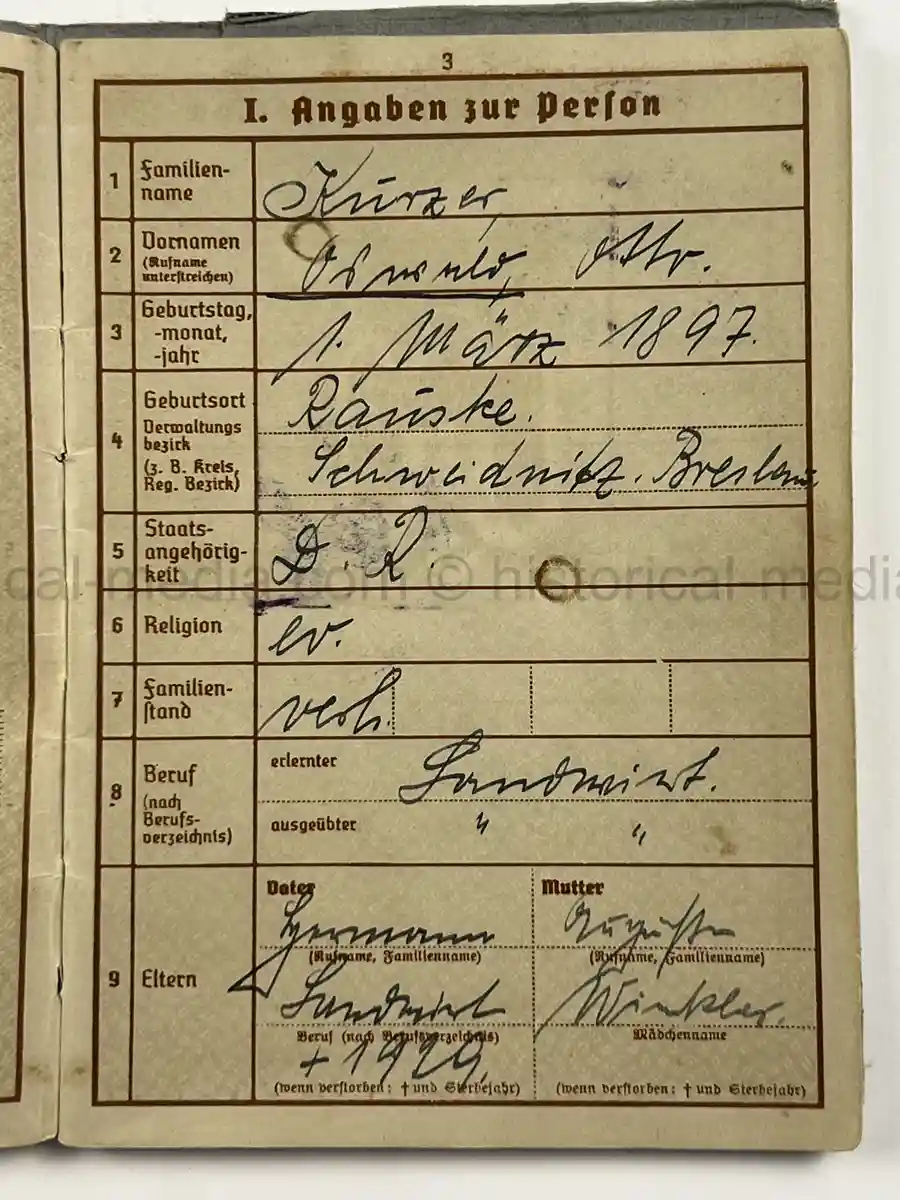 3
I. Angaben zur Person
1 Familien-
name
Kurzer
2 Vornamen
(Rufname
unterstreichen)
Oswald, Otto.
3 Geburtstag,
-monat,
-jahr
1. März 1897.
4 Geburtsort
Verwaltungs
bezirk
(z. B. Kreis,
Reg. Bezirk)
Rauske.
Schweidnitz. Breslau
5 Staats-
angehörig-
keit
D. R.
6 Religion
ev.
7 Familien-
stand
verh.
8 Beruf
(nach
Berufs-
verzeichnis)
erlernter Landwirt.
ausgeübter " "
9 Eltern
Vater
Hermann
(Rufname, Familienname)
Landwirt
Beruf (nach Berufsverzeichnis)
+ 1929.
(wenn verstorben: † und Sterbejahr)
Mutter
Auguste
(Rufname, Familienname)
Winkler.
Mädchenname
(wenn verstorben: † und Sterbejahr)
cal-media.com © historical-media